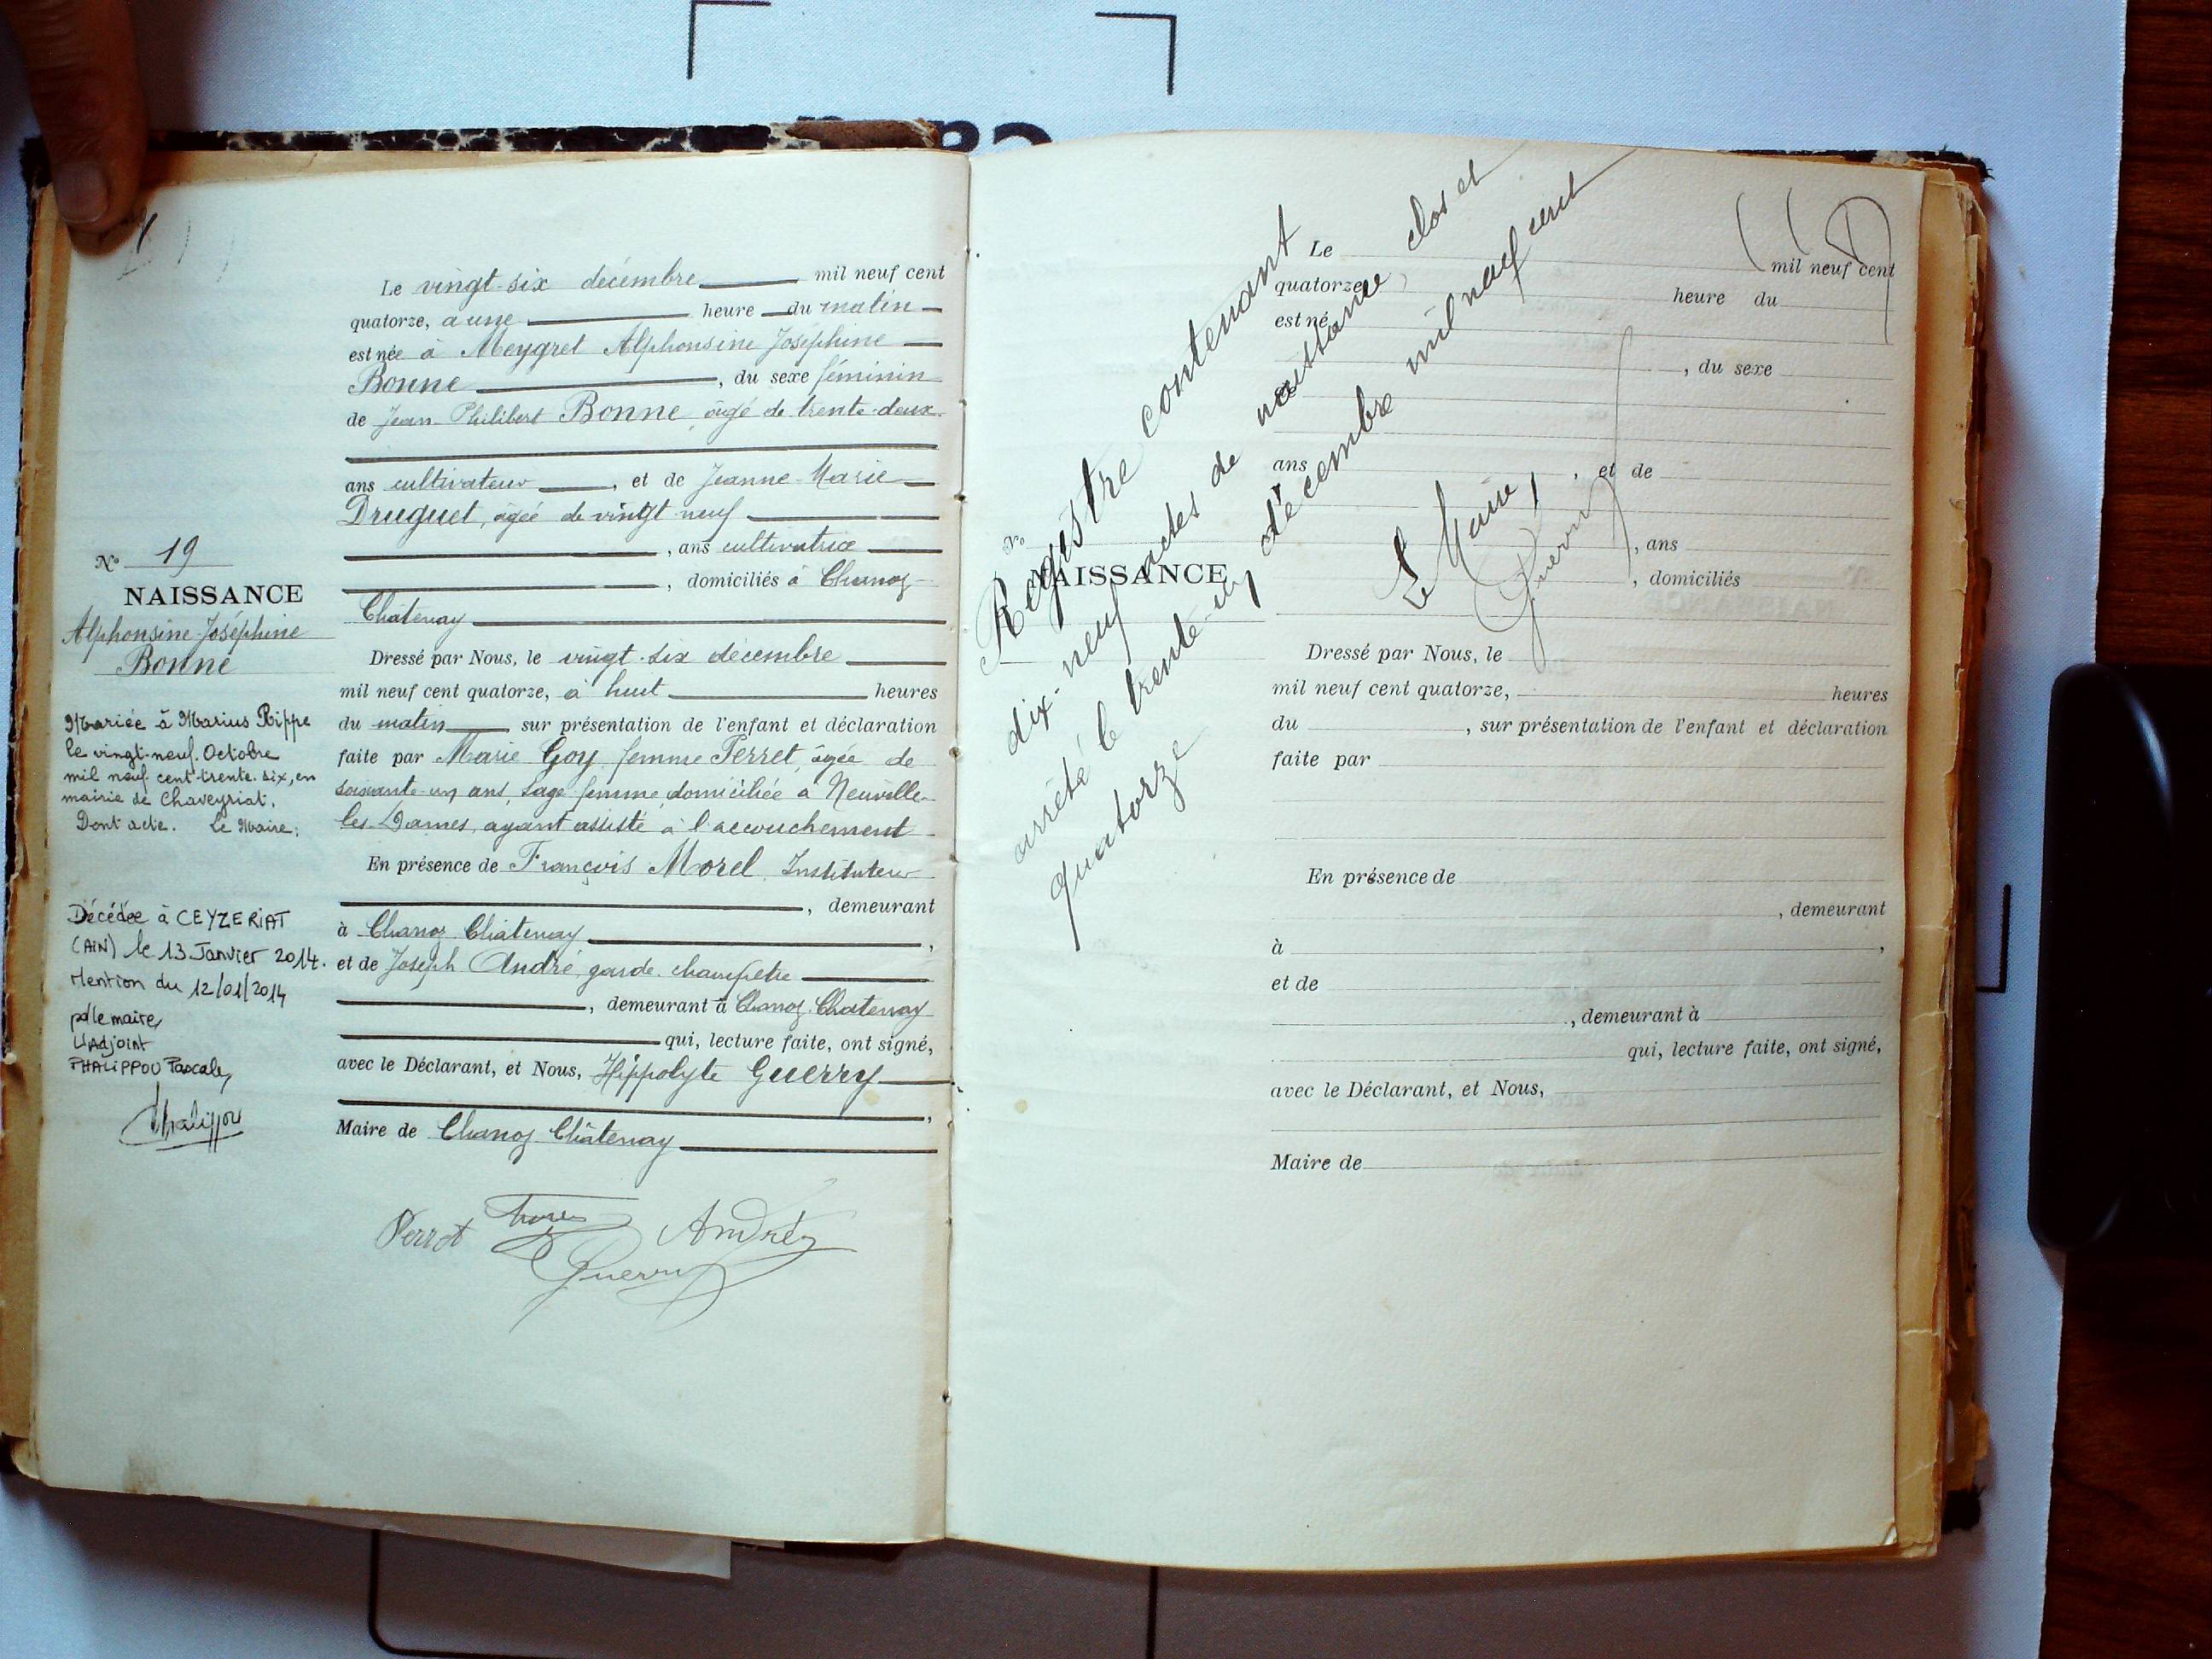 Le vingt-six décembre mil neuf cent
quatorze, à une heure du matin
est née à Meygret Alphonsine Joséphine
Bonne, du sexe féminin
de Jean Philibert Bonne, âgé de trente-deux
ans cultivateur, et de Jeanne-Marie
Druguet, âgée de vingt-neuf
, ans cultivatrice
, domiciliés à Chanoz-
Châtenay
Dressé par Nous, le vingt-six décembre
mil neuf cent quatorze, à huit heures
du matin sur présentation de l'enfant et déclaration
faite par Marie Goy femme Perret, âgée de
soixante-un ans, sage-femme, domiciliée à Neuville-
les-Dames, ayant assisté à l'accouchement
En présence de François Morel, Instituteur
, demeurant
à Chanoz-Châtenay,
et de Joseph André, garde-champetre
, demeurant à Chanoz-Chatenay
qui, lecture faite, ont signé,
avec le Déclarant, et Nous, Hippolyte Guerry
,
Maire de Chanoz-Châtenay
Perret André
Guerry
N° 19
NAISSANCE
Alphonsine-Joséphine
Bonne
Mariée à Marius Rippe
le vingt-neuf Octobre
mil neuf cent trente-six, en
mairie de Chaveyriat.
Dont acte. Le Maire:
Décédée à CEYZERIAT
(AIN) le 13 Janvier 2014.
Mention du 12/01/2014
p/le maire,
L'Adjoint
THALIPPOU Pascale,
Thalippou
Registre contenant
dix-neuf actes de naissance clos et
arrêté le trente-un décembre mil neuf cent
quatorze
Le Maire,
Guerry
Le mil neuf cent
quatorze, heure du
est né
, du sexe
ans , et de
N°
NAISSANCE
, ans
, domiciliés
Dressé par Nous, le
mil neuf cent quatorze, heures
du , sur présentation de l'enfant et déclaration
faite par
En présence de
, demeurant
à ,
et de
, demeurant à
qui, lecture faite, ont signé,
avec le Déclarant, et Nous,
Maire de